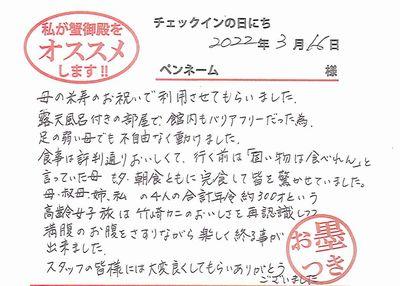 私が蟹御殿を
オススメ
します!!
チェックインの日にち
2022年3月16日
ペンネーム 様
母の米寿のお祝いで利用させてもらいました。
露天風呂付きの部屋で、館内もバリアフリーだった為、
足の弱い母でも不自由なく動けました。
食事は評判通りおいしくて、行く前は「固い物は食べれん」と
言っていた母も夕・朝食ともに完食して皆を驚かせていました。
母・叔母・姉、私の4人の合計年令約300才という
高齢女子旅は竹崎カニのおいしさを再認識しつつ
満腹のお腹をさすりながら楽しく終る事が
出来ました。
スタッフの皆様には大変良くしてもらいありがとう
ございました
お墨
つき